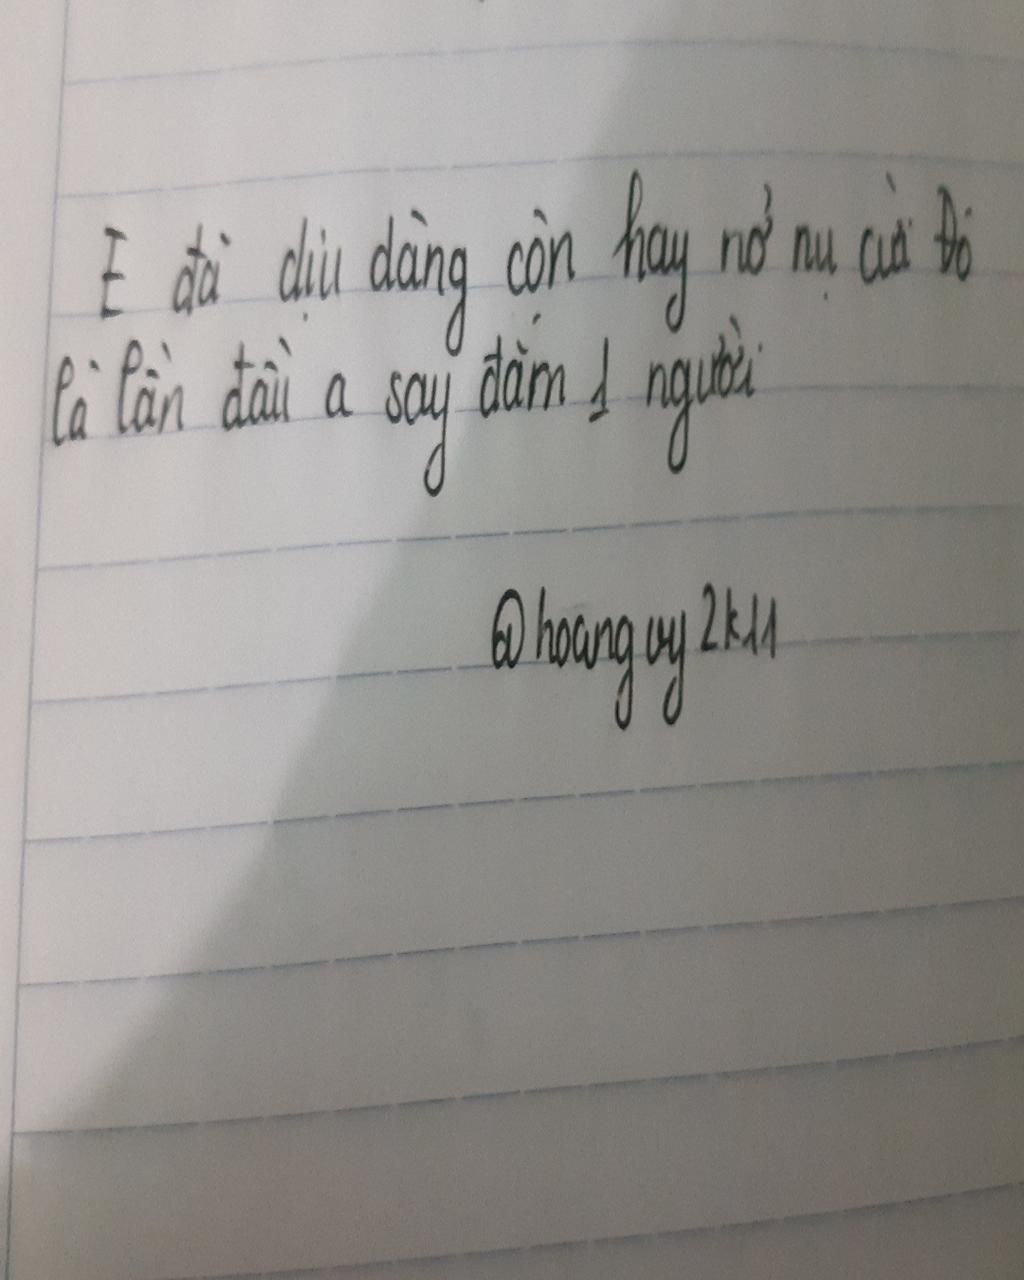 E đã dịu dàng còn hay nở nụ cười Đó
là lần đầu a say đắm 1 người
@hoangvy2k11